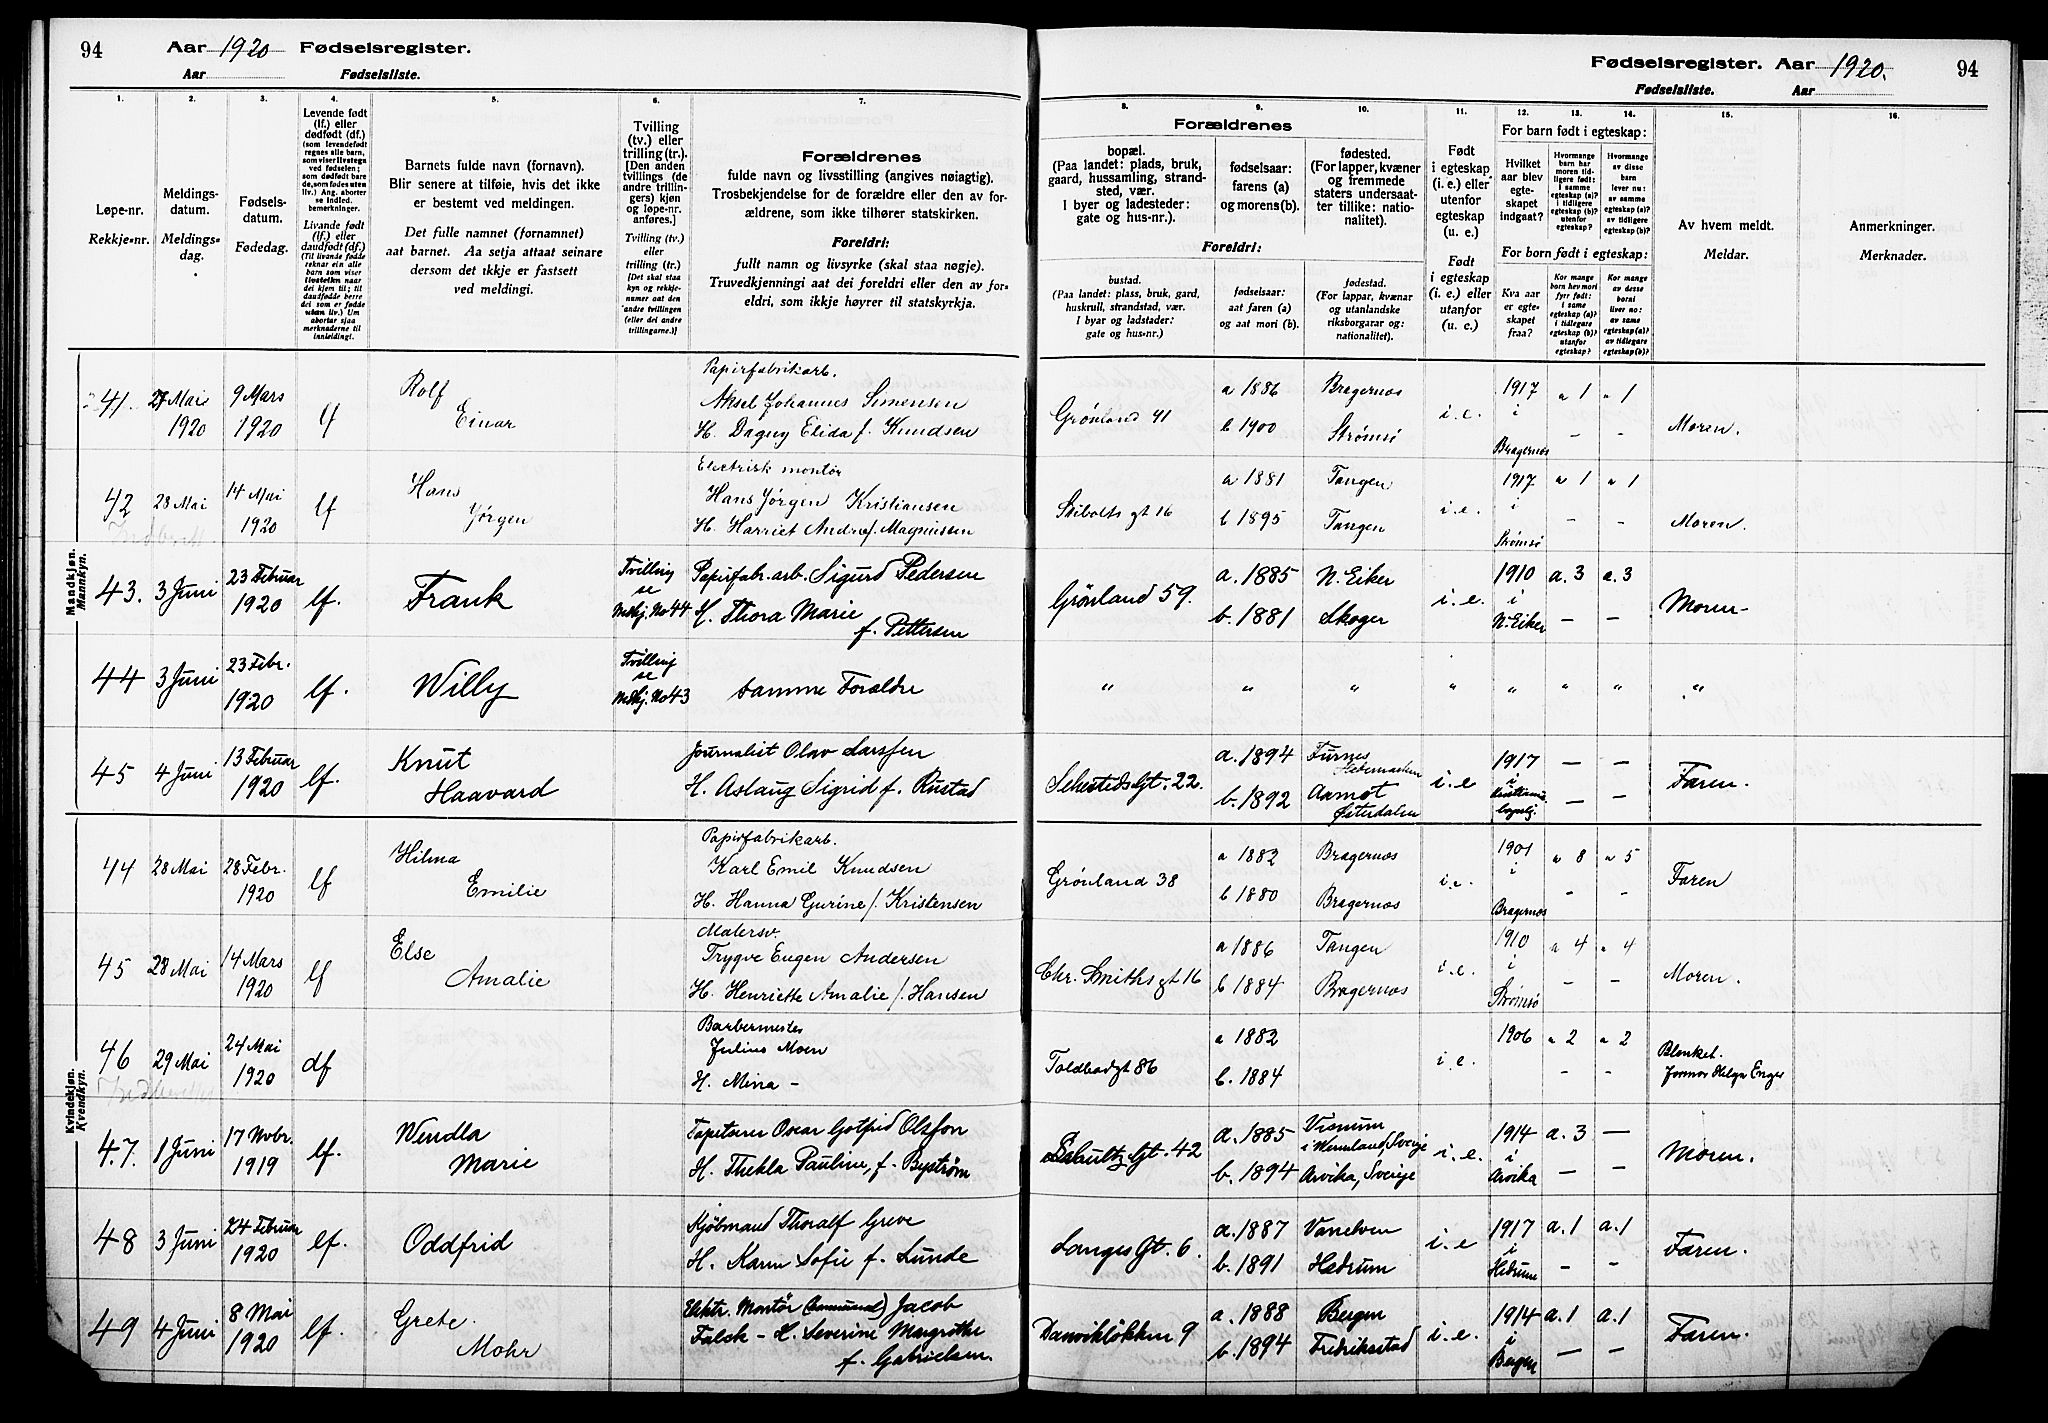 94 Aar 1920 Fødselsregister.
Aar Fødselsliste.
Fødselsregister. Aar 1920. 94
Fødselsliste. Aar
1. 2. 3. 4. 5. 6. 7. 8. 9. 10. 11. 12. 13. 14. 15. 16.
Løpe-nr.
Rekkje-nr.
Meldings-
datum.
Meldings-
dag.
Fødsels-
datum.
Fødedag.
Levende født
(lf.) eller
dødfødt (df.)
(som levendefødt
regnes alle barn,
som viser livstegn
ved fødselen;
som dødfødt bare
de, som fødes uten
liv.) Ang. aborter
se indled.
bemerkninger.
Livande født
(lf.) eller
daudfødt (df.)
(Til livande fødde
reknar ein alle
barn som viser
livsteikn naar
dei kjem til; til
daudfødde berre
dei som er fødde
utan liv.) Um
abortar sjaa
merknaderne til
innleiding!
Barnets fulde navn (fornavn).
Blir senere at tilføie, hvis det ikke
er bestemt ved meldingen.
Det fulle namnet (fornamnet)
aat barnet. Aa setja attaat seinare
dersom det ikkje er fastsett
ved meldingi.
Tvilling
(tv.) eller
trilling (tr.).
[Den anden
tvillings (de
andre trillin-
gers) kjøn
og løpe-nr.
anføres.]
Tvilling (tv.)
eller
trilling (tr.)
[Det skal staa
kyn og rekkje-
numer aat den
andre tvillingen
(eller dei andre
trillingarne.)]
Forældrenes
fulde navn og livsstilling (angives nøiagtig).
Trosbekjendelse for de forældre eller den av for-
ældrene, som ikke tilhører statskirken.
Foreldri:
fullt namn og livsyrke (skal staa nøgje).
Truvedkjenningi aat dei foreldri eller den av for-
eldri, som ikkje høyrer til statskyrkja.
Forældrenes
bopæl.
(Paa landet: plads, bruk,
gaard, hussamling, strand-
sted, vær.
I byer og ladesteder:
gate og hus-nr.).
fødselsaar:
farens (a)
og morens(b).
fødested.
(For lapper, kvæner
og fremmede
staters undersaat-
ter tillike: natio-
nalitet).
Foreldri:
bustad.
(Paa landet: plass, bruk, gard,
huskrull, strandstad, vær.
I byar og ladstader:
gate og hus-nr.)
fødselsaar:
aat faren (a)
og aat mori (b).
fødestad.
(For lappar, kvænar
og utanlandske
riksborgarar og:
nationalitet).
Født
i egteskap
(i. e.) eller
utenfor
egteskap
(u. e.)
Født
i egteskap
(i. e.) eller
utanfor
(u. e.)
For barn født i egteskap:
Hvilket
aar blev
egte-
skapet
indgaat?
Hvormange
barn har
moren tid-
ligere født:
I samme
egteskap (a)?
I tidligere
egteskap (b)?
utenfor
egteskap?
Hvormange
av disse
barn
lever nu:
av samme
egteskap (a)?
av tidligere
egteskap (b)?
For born født i egteskap:
Kva aar
er egte-
skapet
fraa?
Kor mange
born hev mori
fyrr født:
i same
egteskap (a)?
i tidlegare
egteskap (b)?
utanfor
egteskap?
Kor mange
av desse
borni
liver no:
av same
egteskap (a)?
av tidlegare
egteskap (b)?
Av hvem meldt.
Meldar.
Anmerkninger.
Merknader.
Mandkjøn.
Mannkyn.
41. 27 Mai 1920 9 Mars 1920 lf Rolf Einar Papirfabrikarb. Aksel Johannes Simensen H. Dagny Elida f. Knudsen Grønland 41 a 1886 b 1900 Bragernæs Strømsö i.e. 1917 i Bragernæs a 1 a 1 – – Moren.
42 28 Mai 14 Mai 1920 lf Hans Jörgen Electrisk montör Hans Jörgen Kristiansen H. Harriet Andrea f. Magnussen Skibolts gt 16 a 1881 b 1895 Tangen Tangen i.e. 1917 i Strømsö a 1 a 1 – – Moren.
43. 3 Juni 23 Februar 1920 lf. Frank Tvilling se Mdkj. No 44 Papirfabr. arb. Sigurd Pedersen H. Thora Marie f. Pettersen Grønland 59. a. 1885 b. 1881 N. Eiker Skoger i. e. 1910 i N. Eiker a. 3 a. 3 – – Moren–
44 3 Juni 23 Febr. 1920 lf. Willy Tvilling se Mdkj. No 43 samme Forældre " " " " " " " "
45 4 Juni 13 Februar 1920 lf. Knut Haavard Journalist Olav Larssen H. Aslaug Sigrid f. Rustad Sehesteds Gt. 22. a. 1894 b. 1892 Furnes Hedemarken Aamot Østerdalen i. e 1917 i – – – – Faren.
Kvindekjøn.
Kvendkyn.
44 28 Mai 28 Febr. 1920 lf Hilma Emilie Papirfabrikarb. Karl Emil Knudsen H. Hanna Gurine f. Kristensen Grønland 38 a 1882 b 1880 Bragernæs Bragernæs i.e. 1901 i Bragernæs a 8 a 5 – – Faren
45 28 Mai 14 Mars 1920 lf Else Amalie Malersv. Trygve Eugen Andersen H. Henriette Amalie f. Hansen Chr. Smiths gt 16 a 1886 b 1884 Tangen Bragernæs i.e. 1910 i Strømsö a 4 a 4 – – Moren.
46 29 Mai 24 Mai 1920 df Barbermester Julius Moen H. Mina – Toldbodgt 86 a 1882 b. 1884 i.e. 1906 a 2 a 2 – – Blanket. Jormor Helga Enger
47. 1 Juni 17 Novbr. 1919 lf. Wendla Marie Tapetserer Oscar Gotfrid Olsson H. Thekla Pauline, f. Byström Schultz Gt. 42 a. 1885 b. 1894 Visnum i Wermland, Sverige Arvika, Sverige i. e. 1914 i Arvika a. 3 – – – Moren.
48 3 Juni 24 Februar 1920 lf. Oddfrid Kjøbmand Thoralf Greve H. Karen Sofie f. Lunde Langes Gt. 6. a. 1887 b. 1891 Vanelven Hedrum i. e 1917 i Hedrum a. 1 a. 1 – – Faren.
49 4 Juni 8 Mai 1920 lf. Grete Mohr Elektr. Montör (kommunal) Jacob Falck – H. Severine Margrethe f. Gabrielsen. Danvikløkken 9 a. 1888 b. 1894 Bergen Fredriksstad i. e. 1914 i Bergen a. 1 a. 1 – – Faren.